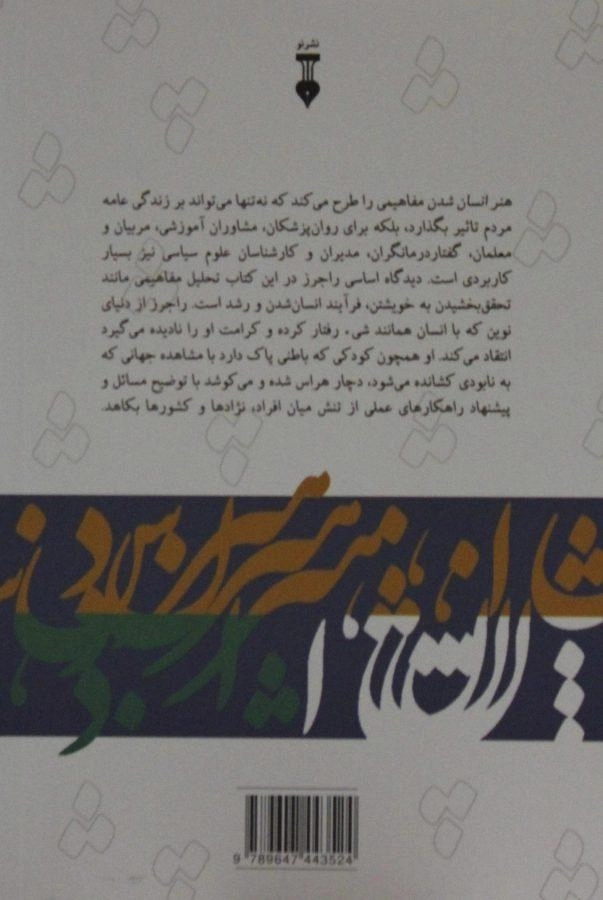 نشرنو
هنر انسان شدن مفاهیمی را طرح می‌کند که نه‌تنها می‌تواند بر زندگی عامه
مردم تاثیر بگذارد، بلکه برای روان‌پزشکان، مشاوران آموزشی، مربیان و
معلمان، گفتاردرمانگران، مدیران و کارشناسان علوم سیاسی نیز بسیار
کاربردی است. دیدگاه اساسی راجرز در این کتاب تحلیل مفاهیمی مانند
تحقق‌بخشیدن به خویشتن، فرآیند انسان‌شدن و رشد است. راجرز از دنیای
نوین که با انسان همانند شیء رفتار کرده و کرامت او را نادیده می‌گیرد
انتقاد می‌کند. او همچون کودکی که باطنی پاک دارد با مشاهده جهانی که
به نابودی کشانده می‌شود، دچار هراس شده و می‌کوشد با توضیح مسائل و
پیشنهاد راهکارهای عملی از تنش میان افراد، نژادها و کشورها بکاهد.
9 789647 443524